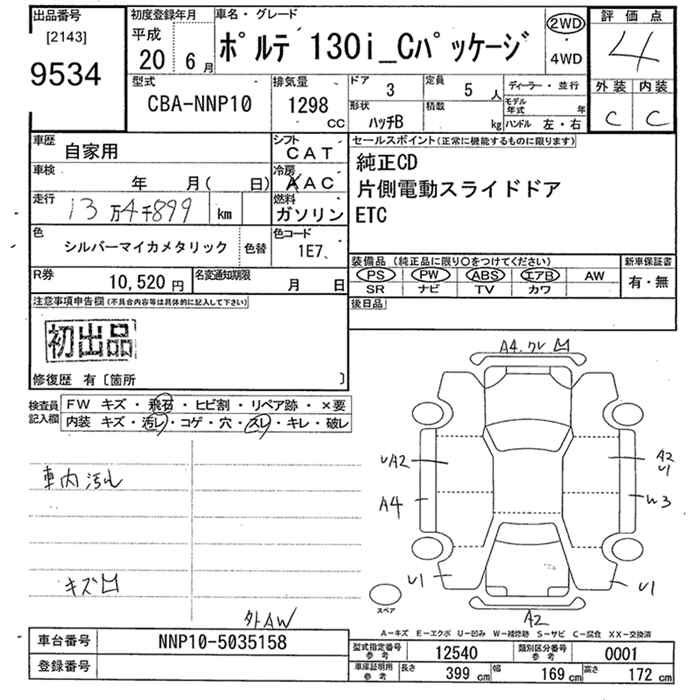 出品番号
[2143]
9534
初度登録年月
平成
20 6月
車名・グレード
ポルテ 130i_Cパッケージ
2WD
・
4WD
評価点
4
外装 内装
C C
型式
CBA-NNP10
排気量
1298
CC
ドア
3
定員
5 人
ディーラー・並行
形状
ハッチB
積数
kg
モデル年式 年
ハンドル 左・右
車歴
自家用
シフト
CAT
車検
年 月( 日)
冷房
AAC
走行
13万4千899 km
燃料
ガソリン
色
シルバーマイカメタリック
色替
色コード
1E7
R券
10,520円
名変通知期限
月 日
セールスポイント(正常に機能するものに限ります)
純正CD
片側電動スライドドア
ETC
装備品(純正品に限り○をつけてください)
PS PW ABS エアB AW
SR ナビ TV カワ
新車保証書
有・無
後日品
注意事項申告欄(不具合内容等は具体的に記入して下さい)
初出品
修復歴 有〔箇所 〕
検査員
記入欄
FW キズ・飛石・ヒビ割・リペア跡・×要
内装 キズ・汚レ・コゲ・穴・スレ・キレ・破レ
車内汚レ
キズ凹
外AW
A4.ワレ凹
UA2
A4
U1
A2
U1
W3
U1
A2
スペア
A―キズ E―エクボ U―凹み W―補修跡 S―サビ C―腐食 XX―交換済
車台番号
NNP10-5035158
登録番号
型式指定番号
参考
12540
類別区分番号
参考
0001
車庫証明用
参考
長さ 399 cm 幅 169 cm 高さ 172 cm